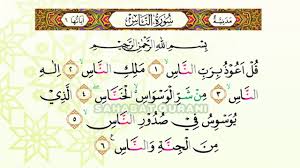 مدنية سورة الناس آياتها ٦
بسم الله الرحمن الرحيم
قُلْ أَعُوذُ بِرَبِّ النَّاسِ ١ مَلِكِ النَّاسِ ٢ إِلَٰهِ
النَّاسِ ٣ مِن شَرِّ الْوَسْوَاسِ الْخَنَّاسِ ٤ الَّذِي
يُوَسْوِسُ فِي صُدُورِ النَّاسِ ٥
مِنَ الْجِنَّةِ وَالنَّاسِ ٦